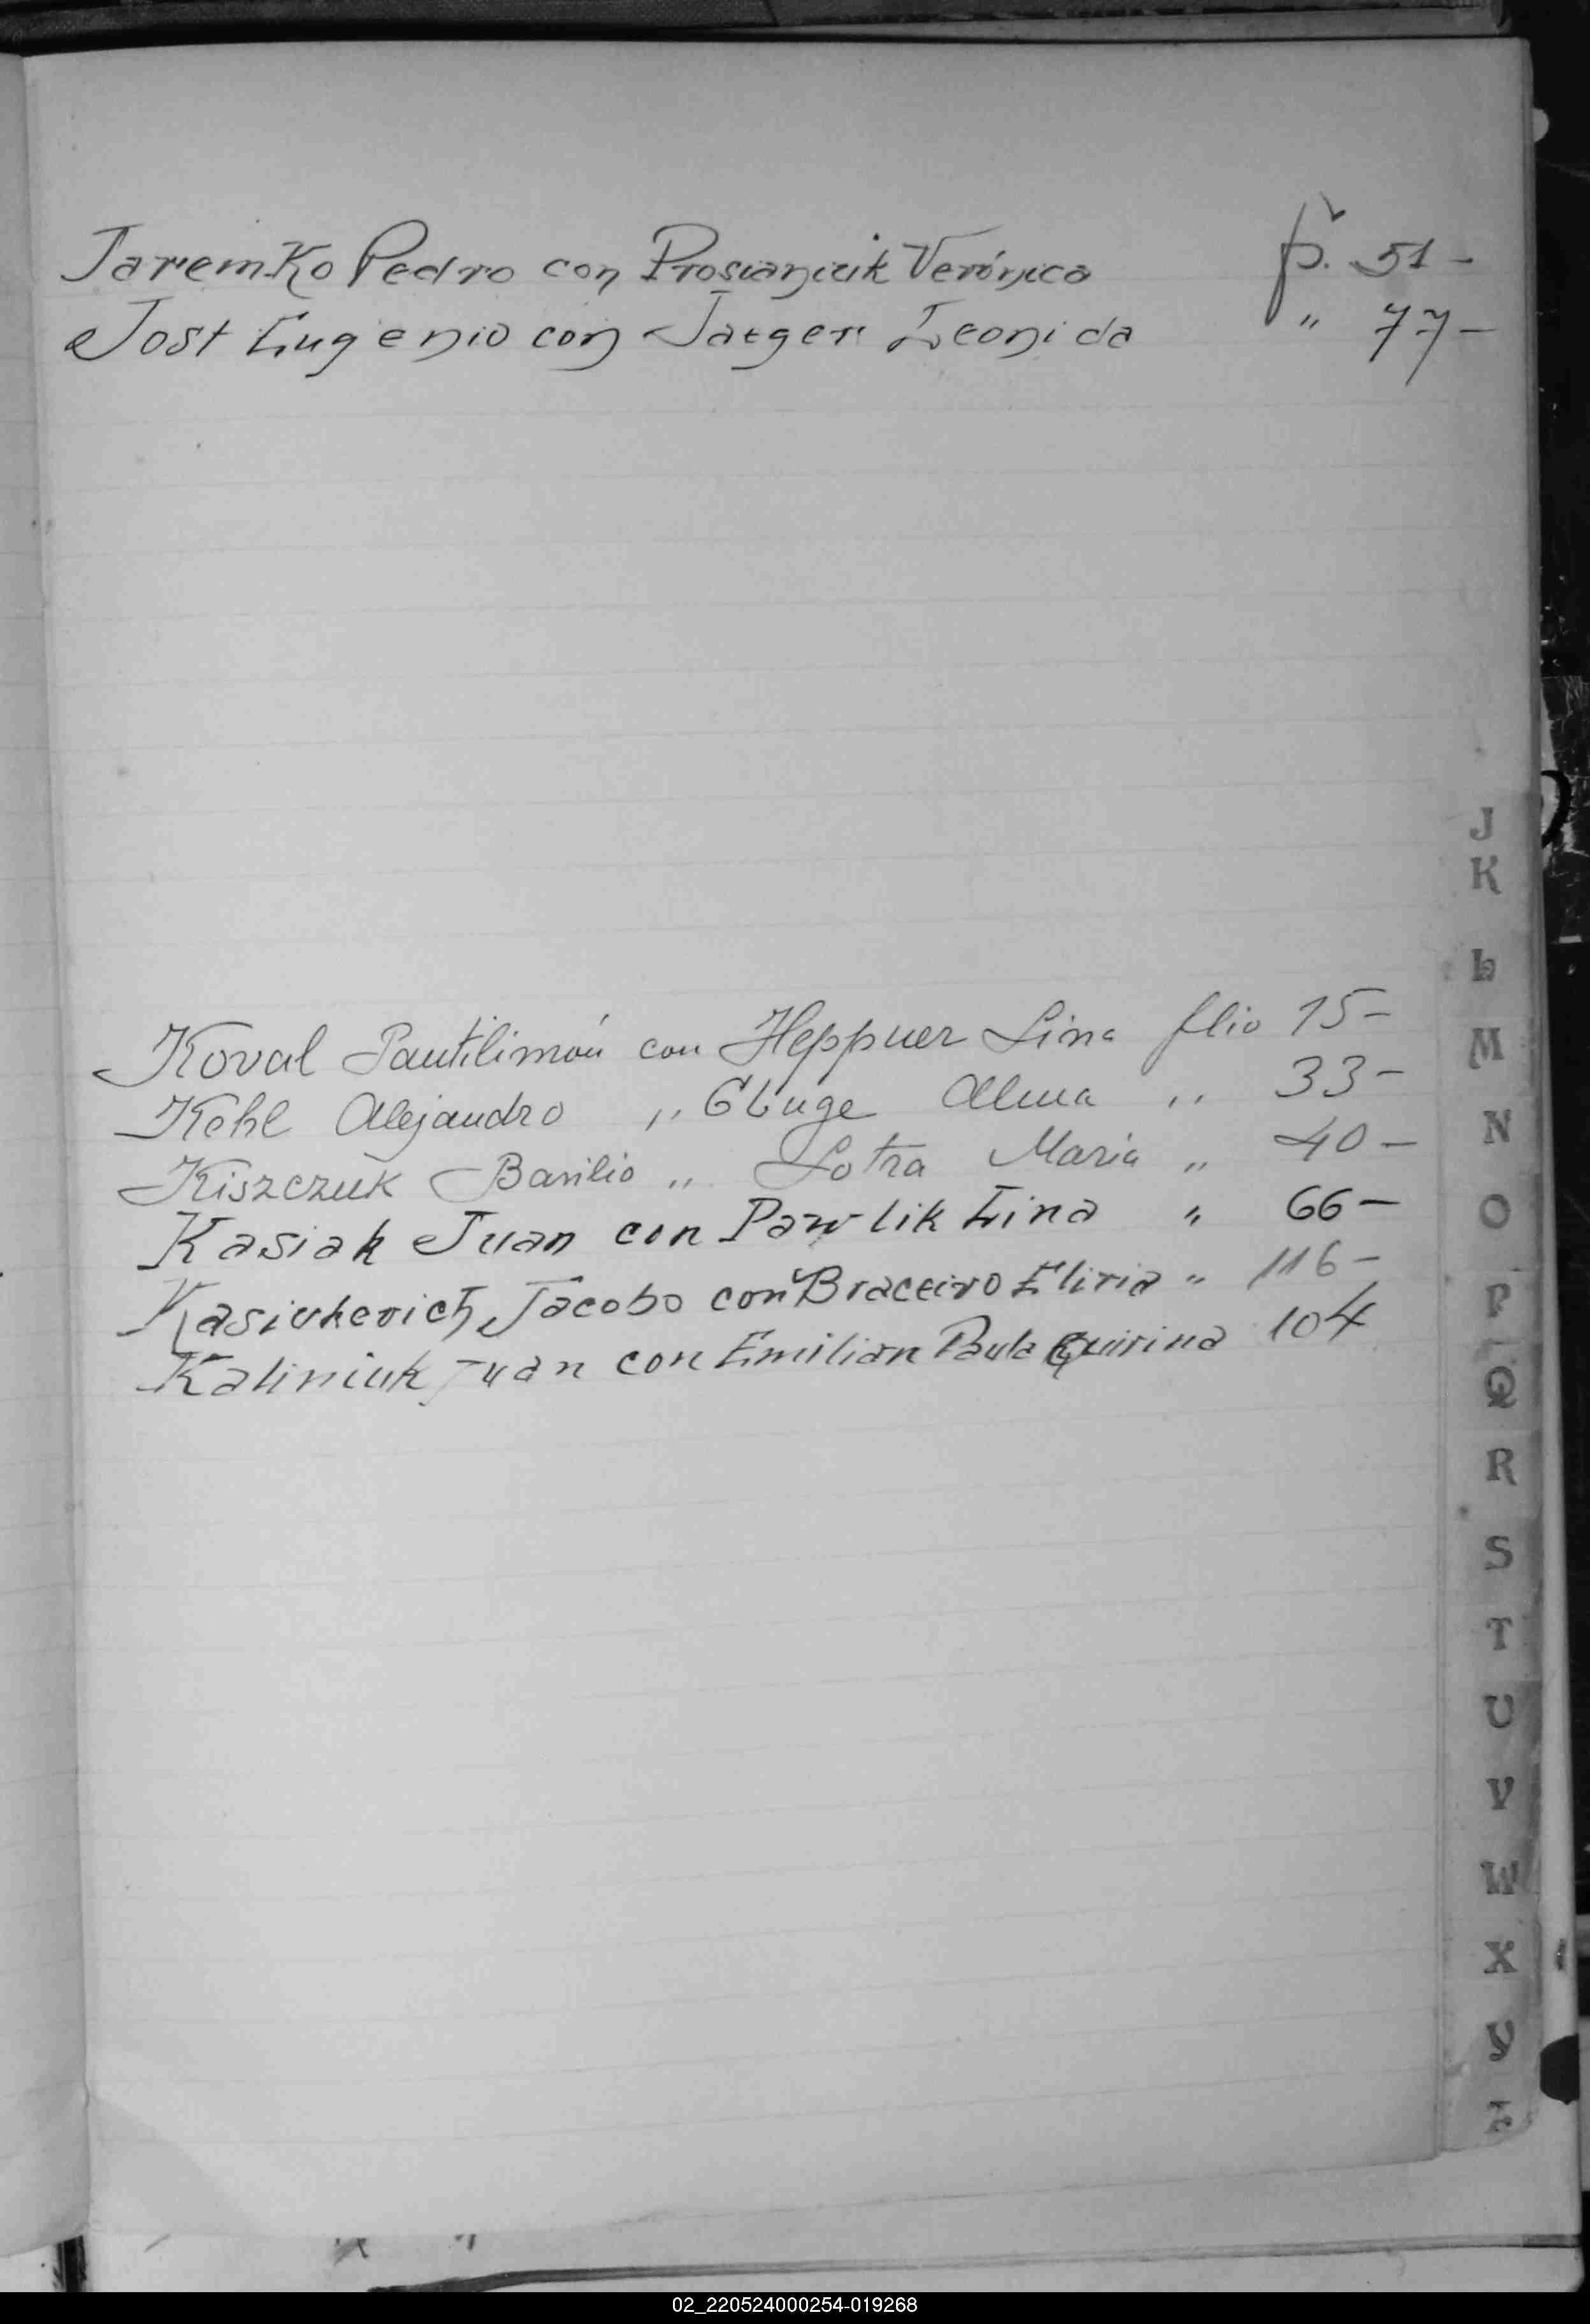 Jaremko Pedro con Prosianicik Verónica f. 51 -
Jost Eugenio con Jaeger Leonida " 77 -
J
K
L
Koval Pantilimón con Heppner Lina flio 15 -
M
Kehl Alejandro " Gluge Alma " 33 -
N
Kiszczuk Basilio " Lotra Maria " 40 -
Kasiak Juan con Pawlik Lina " 66 -
O
Kasiukevich Jacobo con Braceiro Eliria " 116 -
P
Kaliniuk Juan con Emilian Paula Quirina 104
Q
R
S
T
U
V
W
X
Y
Z
02_220524000254-019268